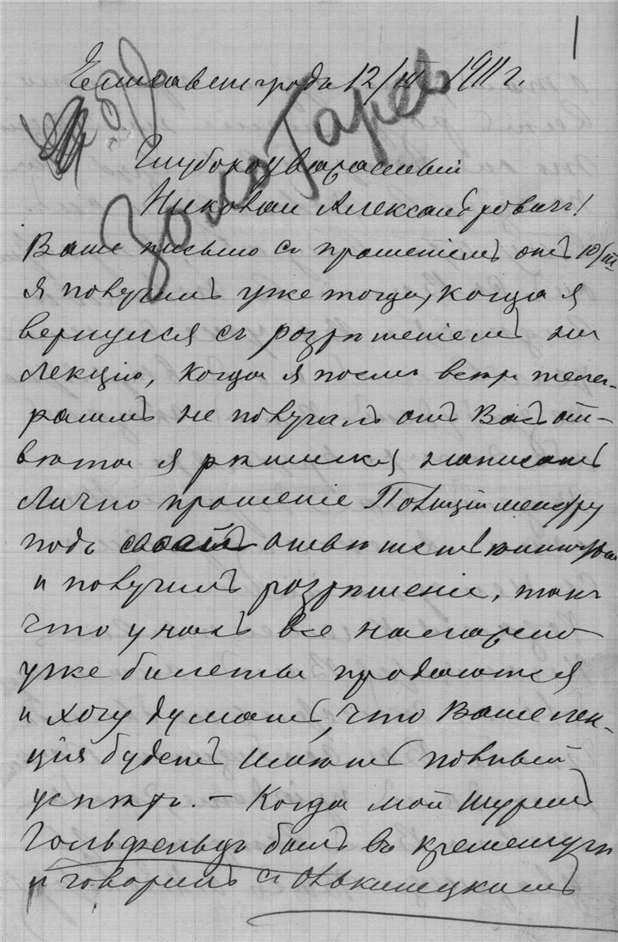 1
Елисаветградъ 12/III 1911 г.
Золотарев
Глубокоуважаемый
Николай Александровичъ!
Ваше письмо съ прошеніемъ отъ 10/III
я получилъ уже тогда, когда я
вернулся съ розрѣшеніемъ на
лекцію, когда я послѣ телег-
раммъ не получалъ отъ Васъ от-
вѣта я рѣшился написать
лично прошеніе Полицiймейстеру
подъ своей отвѣтственностью
и получилъ розрѣшеніе, такъ
что у насъ все налажено
уже билеты продаются
и хочу думать, что Ваша лек-
ція будетъ имѣть полный
успѣхъ. – Когда мой шуринъ
Гольфельдъ былъ въ Кременчугѣ
и говорилъ съ